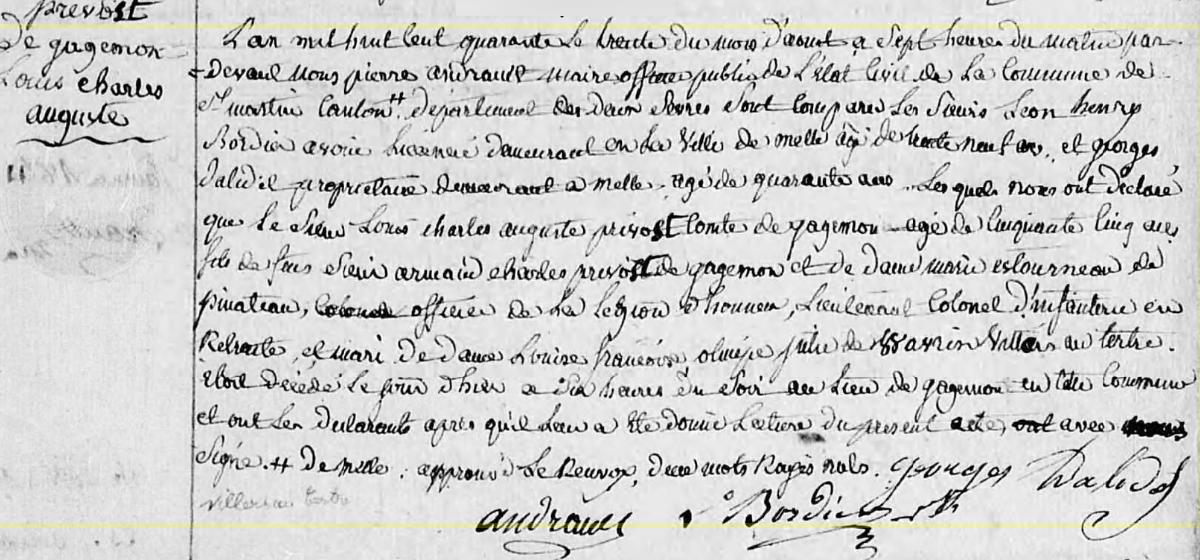 prevost
De gagemon
Louis charles
auguste
L'an mil huit cent quarante Le trente du mois d'aout a sept heures du matin par-
Devant Nous pierre andrault maire officier public de L'état Civil de La Commune de
St martin Canton ++ département des deux sevres sont Comparus Les sieurs Leon henry
Bordier avoué Licencié demeurant en La Ville de melle agé de trente neuf ans, et georges
Dalidel propriétaire demeurant a melle, agé de quarante ans, Les quels nous ont déclaré
que Le sieur Louis charles auguste prevost Comte de gagemon agé de Cinquante Cinq ans
fils de feus sieur armand charles prevost de gagemon et de dame marie estourneau de
pinateau, officier de La Legion d'honneur, Lieutenant Colonel d'infanterie en
Retraite, et mari de dame Louise françoise olimpe julie de Wavrin Villers au tertre.
Etoit décédé Le jour d'hier a dix heures du soir au Lieu de gagemon en Cette Commune
et ont Les declarants après qu'il Leur a été donné Lecture du present acte, ont avec nous
signé. ++ De melle. approuvé Le Renvoy, deux mots Rayés nuls. Georges Dalidel
villers au tertre
andrault Bordier